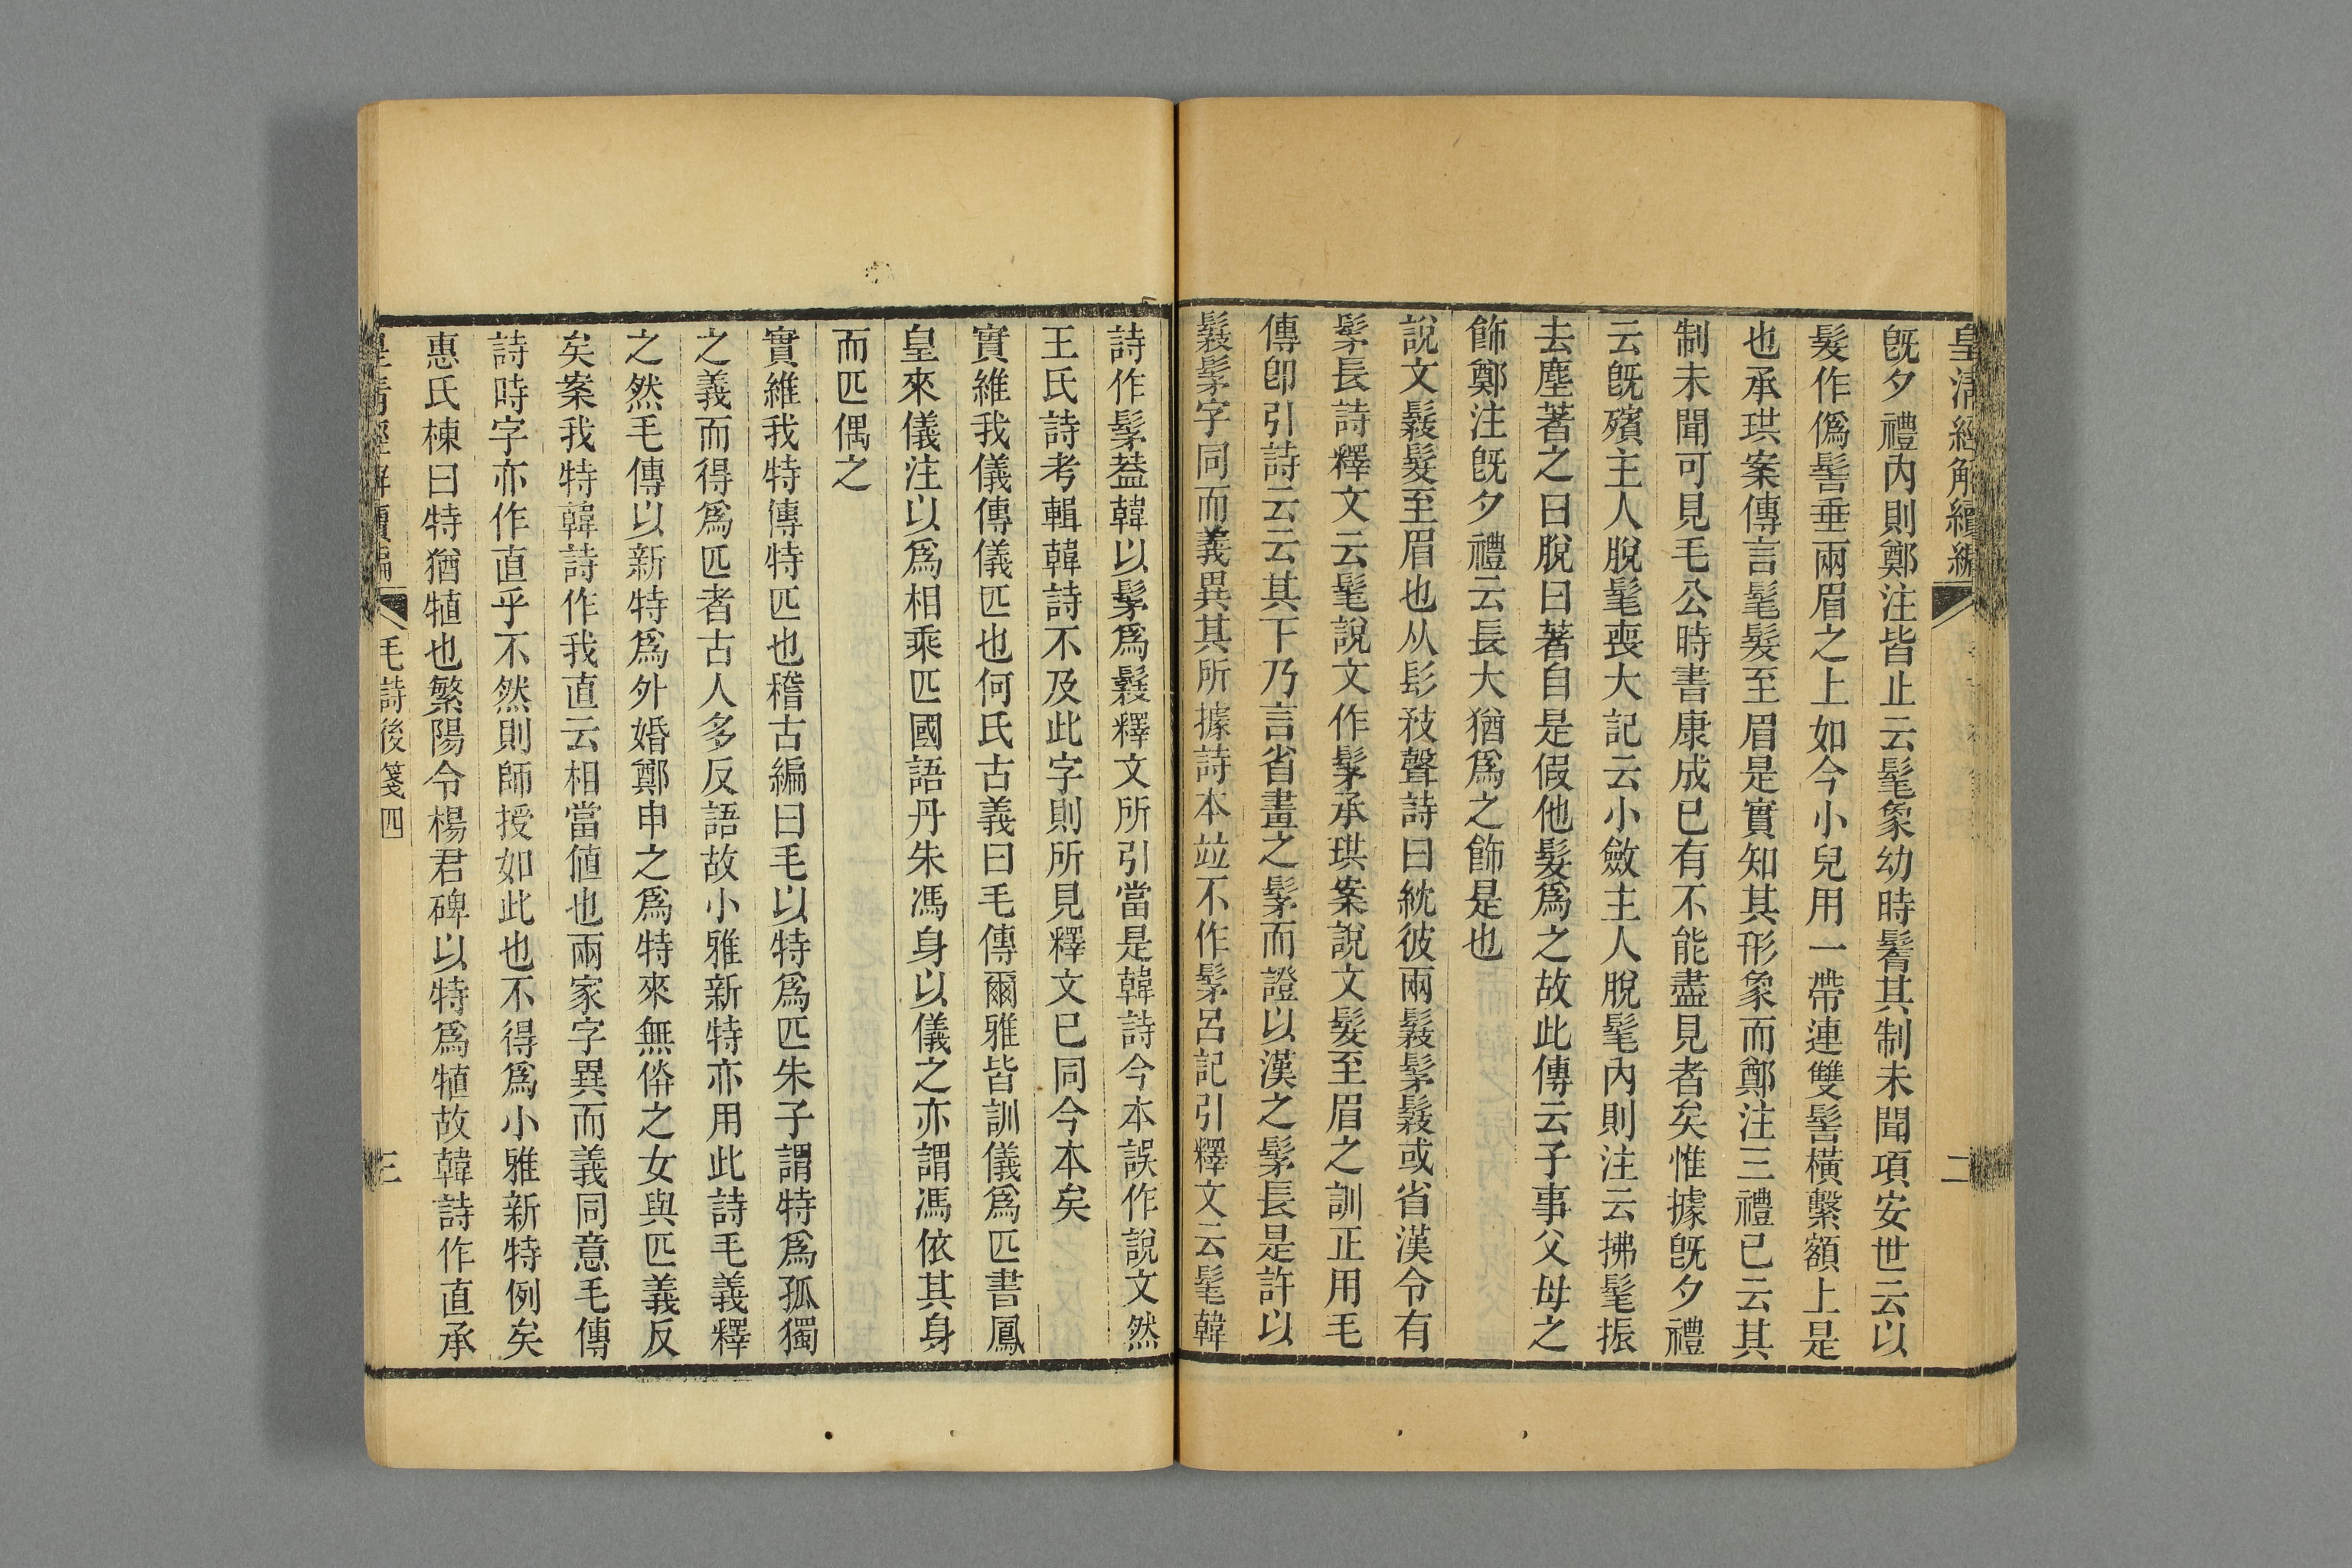 皇清經解續編
二
既夕禮內則鄭注皆止云髦象幼時鬌其制未聞項安世云以
髮作僞髻垂兩眉之上如今小兒用一帶連雙髻橫繫額上是
也承珙案傳言髦髮至眉是實知其形象而鄭注三禮已云其
制未聞可見毛公時書康成已有不能盡見者矣惟據既夕禮
云既殯主人脫髦喪大記云小斂主人脫髦內則注云拂髦振
去塵著之曰脫曰著自是假他髮爲之故此傳云子事父母之
飾鄭注既夕禮云長大猶爲之飾是也
說文鬏髮至眉也从髟敄聲詩曰紞彼兩鬏髳鬏或省漢令有
髳長詩釋文云髦說文作髳承珙案說文髮至眉之訓正用毛
傳卽引詩云云其下乃言省畫之髳而證以漢之髳長是許以
鬏髳字同而義異其所據詩本並不作髳呂記引釋文云髦韓
詩作髳葢韓以髳爲鬏釋文所引當是韓詩今本誤作說文然
王氏詩考輯韓詩不及此字則所見釋文已同今本矣
實維我儀傳儀匹也何氏古義曰毛傳爾雅皆訓儀爲匹書鳳
皇來儀注以爲相乘匹國語丹朱馮身以儀之亦謂馮依其身
而匹偶之
實維我特傳特匹也稽古編曰毛以特爲匹朱子謂特爲孤獨
之義而得爲匹者古人多反語故小雅新特亦用此詩毛義釋
之然毛傳以新特爲外婚鄭申之爲特來無倴之女與匹義反
矣案我特韓詩作我直云相當値也兩家字異而義同意毛傳
詩時字亦作直乎不然則師授如此也不得爲小雅新特例矣
惠氏棟曰特猶犆也繁陽令楊君碑以特爲犆故韓詩作直承
皇清經解續編
毛詩後箋四
三